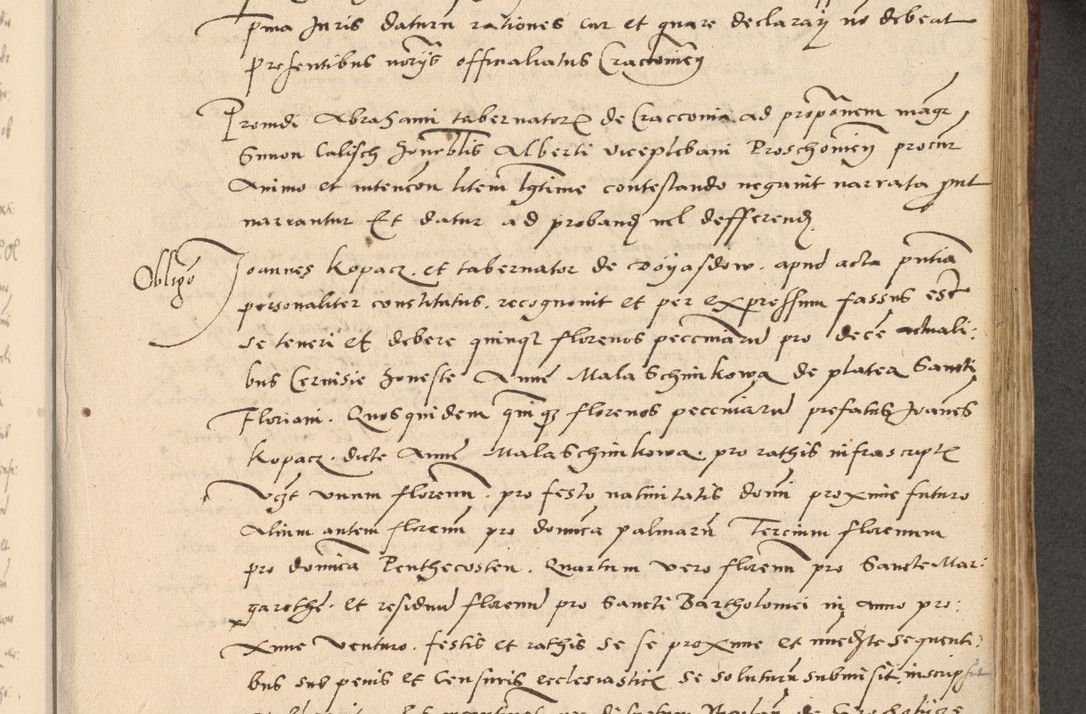 pma Juris datur rationes cur et quare declarari no debeat
presentibus norijs officialatus Cracconien
Providi Abrahami tabernatoris de Cracconia ad proponem magr
Simon Calisch honoblis Alberti viceplebani Proschonien procur
Animo et intencon litem lgtime contestando negauit narrata put
narrantur Et datur ad proband vel defferend
Obligo
Joannes Kopacz et tabernator de Vyasdow apud acta pntia
personaliter constitutus, recognouit et per expressum fassus est
se teneri et debere quinqz florenos pecuniarum pro dece actuali:
bus Ceruisie honeste Anne Malaschinkowa de platea Sancti
Floriani. Quosquidem quiqz florenos pecuniarum prefatus Joanes
Kopacz dicte Anne Malaschinkowa pro rathis infrascriptis
Vczt vnum florenum pro festo natiuitatis domi proxime futuro
Alium autem florenum pro domica palmarum Tercium florenum
pro domica Penthecosten. Quartum vero florenum pro Sancte Mar:
garethe et residuum florenum pro Sancti Bartholomei in anno pro:
xime venturo festis et rathis de se proxime et imediate sequenti:
bus sub penis et Censuris ecclesiasticis se soluturum submisit, inscripsit